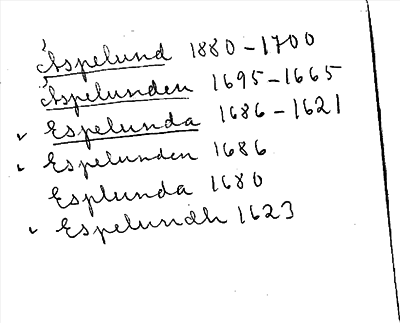 Åspelund 1880-1700
Åspelunden 1695-1665
Espelunda 1686-1621
Espelunden 1686
Esplunda 1680
Espelundh 1623